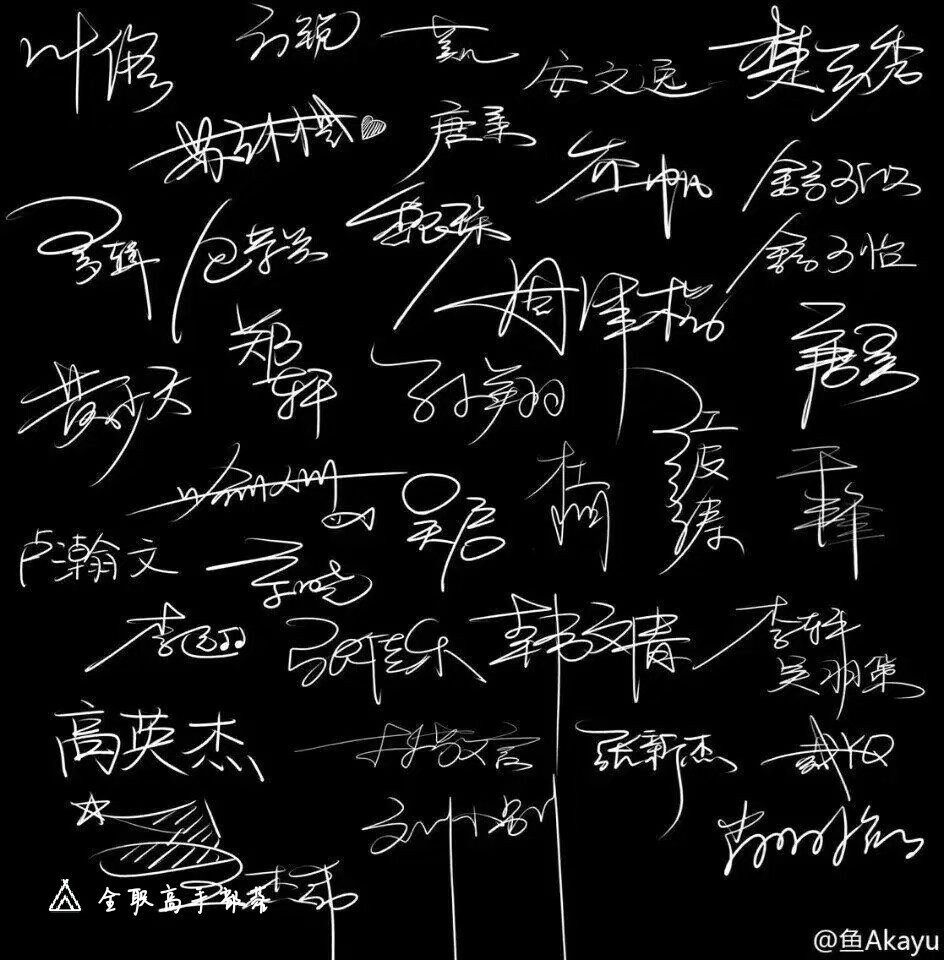 叶修 方锐 莫凡 安文逸 楚云秀
苏沐橙 唐柔
乔一帆 舒可欣
罗辑 包荣兴 魏琛 舒可怡
周泽楷
郑轩
黄少天 孙翔 唐昊
喻文州 吴启 杜明 江波涛 于锋
卢瀚文 宋晓
李迅 张佳乐 韩文清 李轩
吴羽策
高英杰 林敬言 张新杰 戴YQ
刘小别 肖时钦
王杰希
全职高手部落
@鱼Akayu